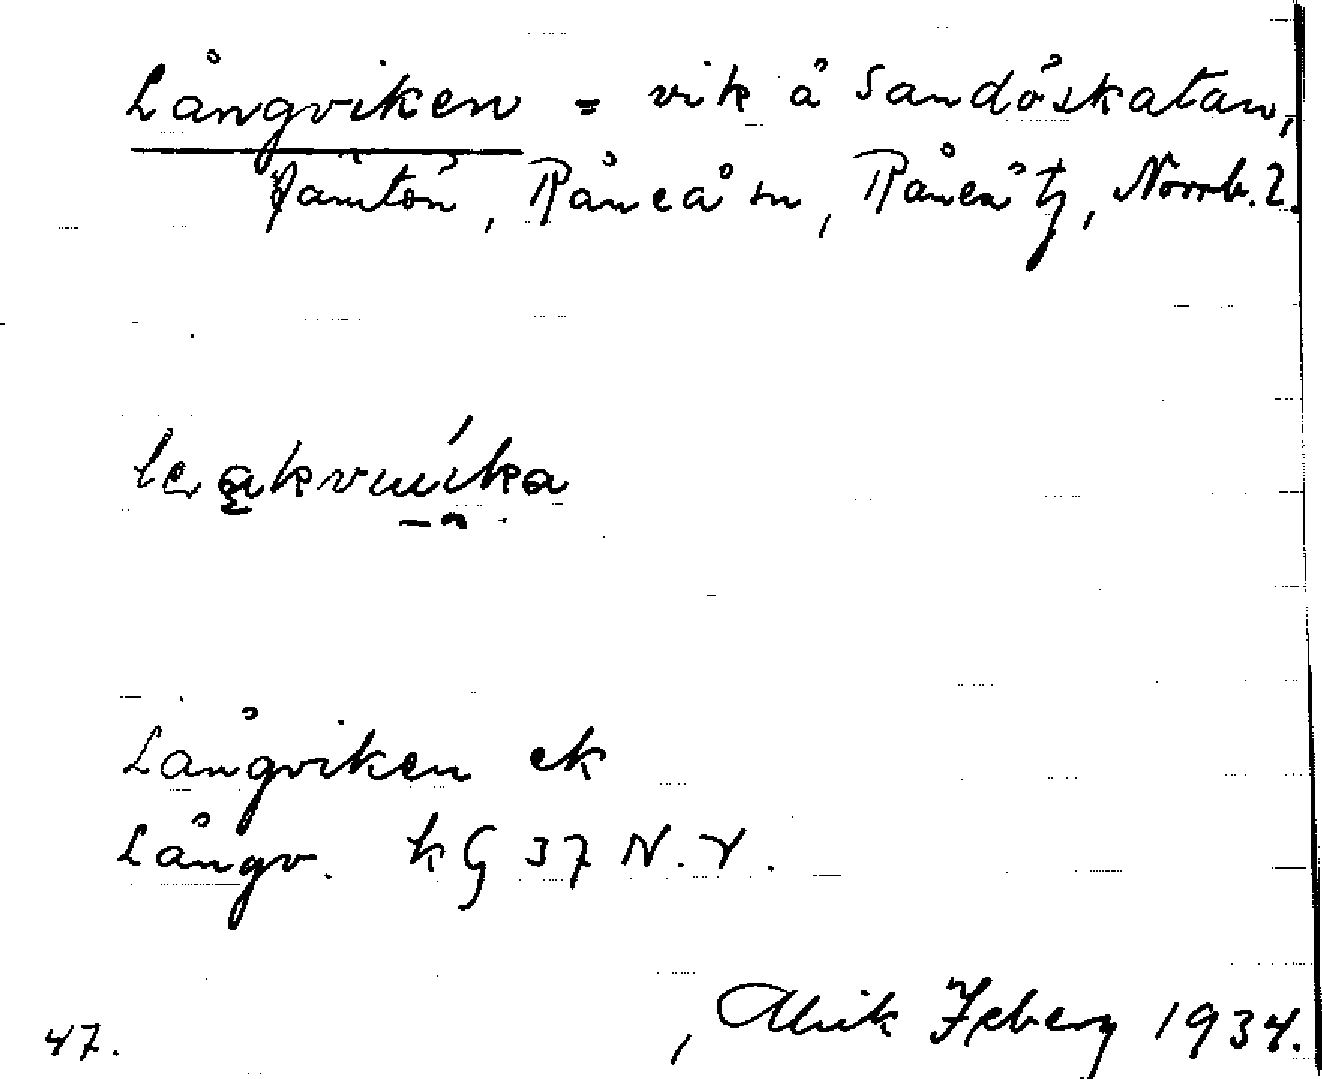 Långviken = vik å Sandöskatan,
Jämtön, Råneå sn, Råneå tg, Norrb. l.
Långviken ek
Långv. kG 37 N.V.
Ulrik Zeberg 1934.
47.